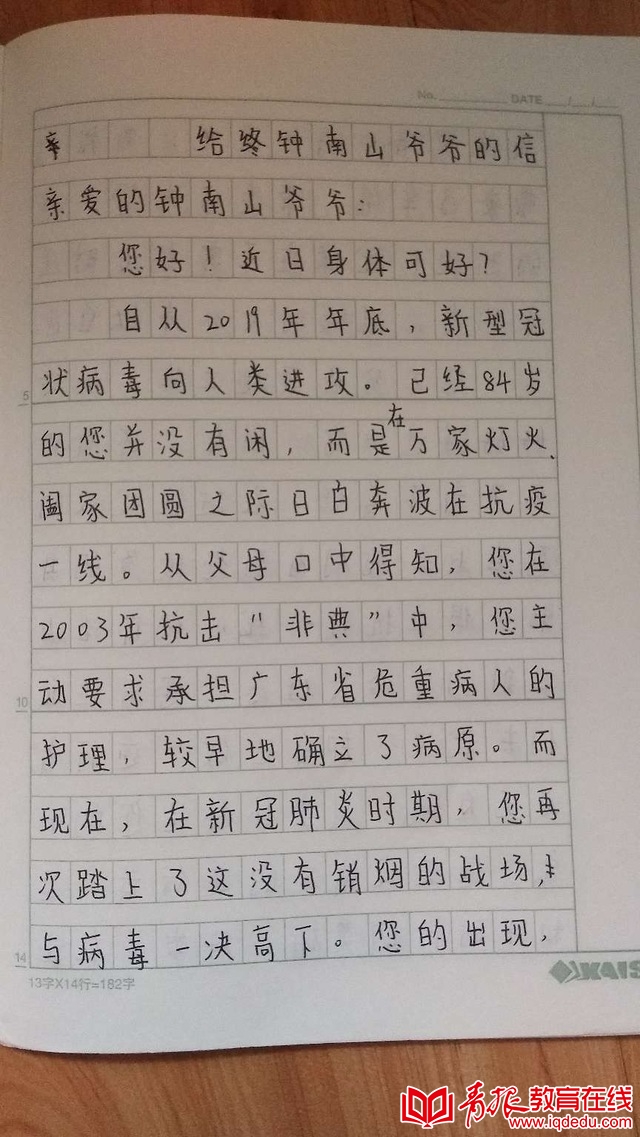 No. DATE / /
给终钟南山爷爷的信
亲爱的钟南山爷爷：
您好！近日身体可好？
自从2019年年底，新型冠
状病毒向人类进攻。已经84岁
的您并没有闲，而是在万家灯火、
阖家团圆之际日白奔波在抗疫
一线。从父母口中得知，您在
2003年抗击“非典”中，您主
动要求承担广东省危重病人的
护理，较早地确立了病原。而
现在，在新冠肺炎时期，您再
次踏上了这没有销烟的战场，
与病毒一决高下。您的出现，
5
10
14
13字X14行=182字
KAIS
青报教育在线
www.iqdedu.com